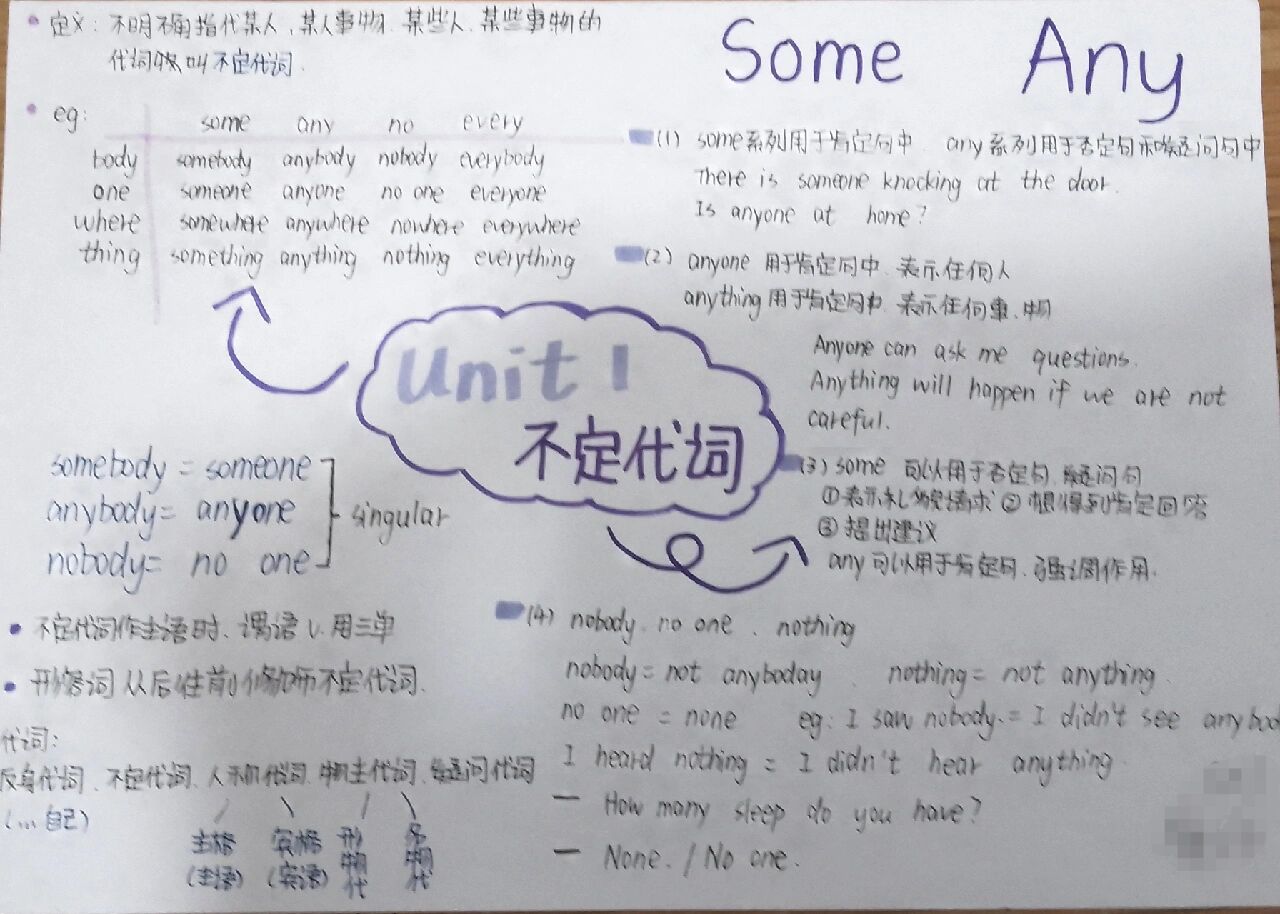 Some Any
定义：不明确指代某人、某人事物、某些人、某些事物的
代词叫不定代词.
eg:
some any no every
body somebody anybody nobody everybody
one someone anyone no one everyone
where somewhere anywhere nowhere everywhere
thing something anything nothing everything
Unit 1
不定代词
somebody = someone
anybody = anyone
nobody = no one
singular
不定代词作主语时、谓语 v. 用三单
形容词 从后往前修饰不定代词.
代词:
反身代词、不定代词、人称代词、物主代词、疑问代词
(...自己)
主格 宾格 形物代 名物代
(主语) (宾语)
(1) some系列用于肯定句中. any系列用于否定句和疑问句中
There is someone knocking at the door.
Is anyone at home?
(2) anyone 用于肯定句中. 表示任何人
anything 用于肯定句中 表示任何事、物
Anyone can ask me questions.
Anything will happen if we are not
careful.
(3) some 可以用于否定句、疑问句
①表示礼貌请求 ② 想得到肯定回答
③ 提出建议
any 可以用于肯定句、强调作用.
(4) nobody. no one . nothing
nobody = not anyboday nothing = not anything.
no one = none eg: I saw nobody. = I didn't see anybod
I heard nothing = I didn't hear anything.
— How many sleep do you have?
— None. / No one.